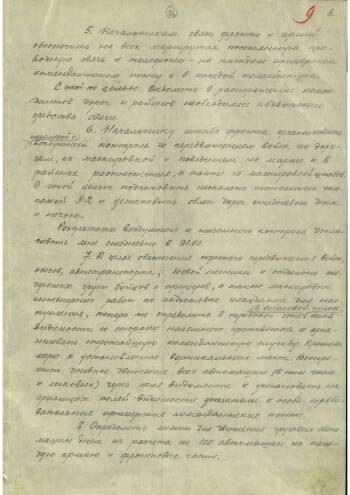 26
9
в.
5. Начальникам связи фронта и армий
обеспечить на всех маршрутах постоянную про-
водную связь и телефоны - на каждом офицерском
комендантском посту и в каждой комендатуре.
С этой целью выделить в распоряжение комен-
дантов дорог и районов необходимые подвижные
средства связи.
6. Начальнику штаба фронта организовать
воздушный контроль за передвижением войск по доро-
гам, их маскировкой и поведением на марше и в
районах расположения, а также за маскировкой штабов.
С этой целью подготовить несколько экипажей
У-2 и установить облет дорог ежедневно днем
и ночью.
Результаты воздушного и наземного контроля докла-
дывать мне ежедневно в 21.00.
7. В целях обеспечения скрытого передвижения войск,
обозов, автотранспорта, боевой техники и отдельно
групп бойцов и офицеров, а также маскировки
инженерных работ по подготовке плацдарма для нас-
тупления, теперь же определить
видимости со стороны наземного противника и орга-
низовать строжайшую комендантскую службу. Принять
меры к установлению вертикальных масок. Воспре-
тить дневное движение всех автомашин (в том числе
и легковых) через поля видимости и установить на
границах полей видимости указатели и особо требо-
вательные офицерские комендантские посты.
8. Определить лимит для движения грузовых авто
машин днем из расчета по 100 автомашин на
армию и фронтовые части.